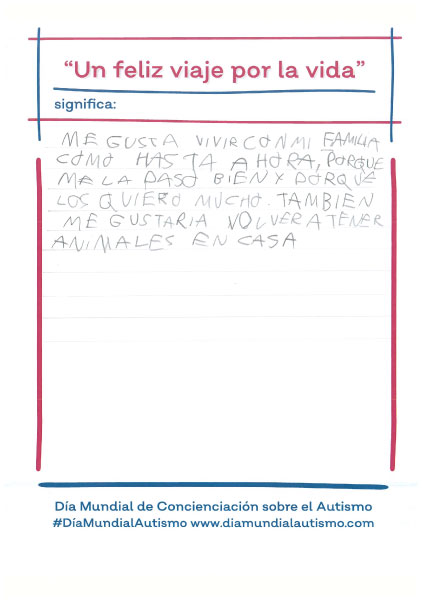 “Un feliz viaje por la vida”
significa:
ME GUSTA VIVIR CON MI FAMILIA
COMO HASTA AHORA, PORQUE
ME LA PASO BIEN Y PORQUE
LOS QUIERO MUCHO. TAMBIEN
ME GUSTARIA VOLVER A TENER
ANIMALES EN CASA
Día Mundial de Concienciación sobre el Autismo
#DíaMundialAutismo www.diamundialautismo.com